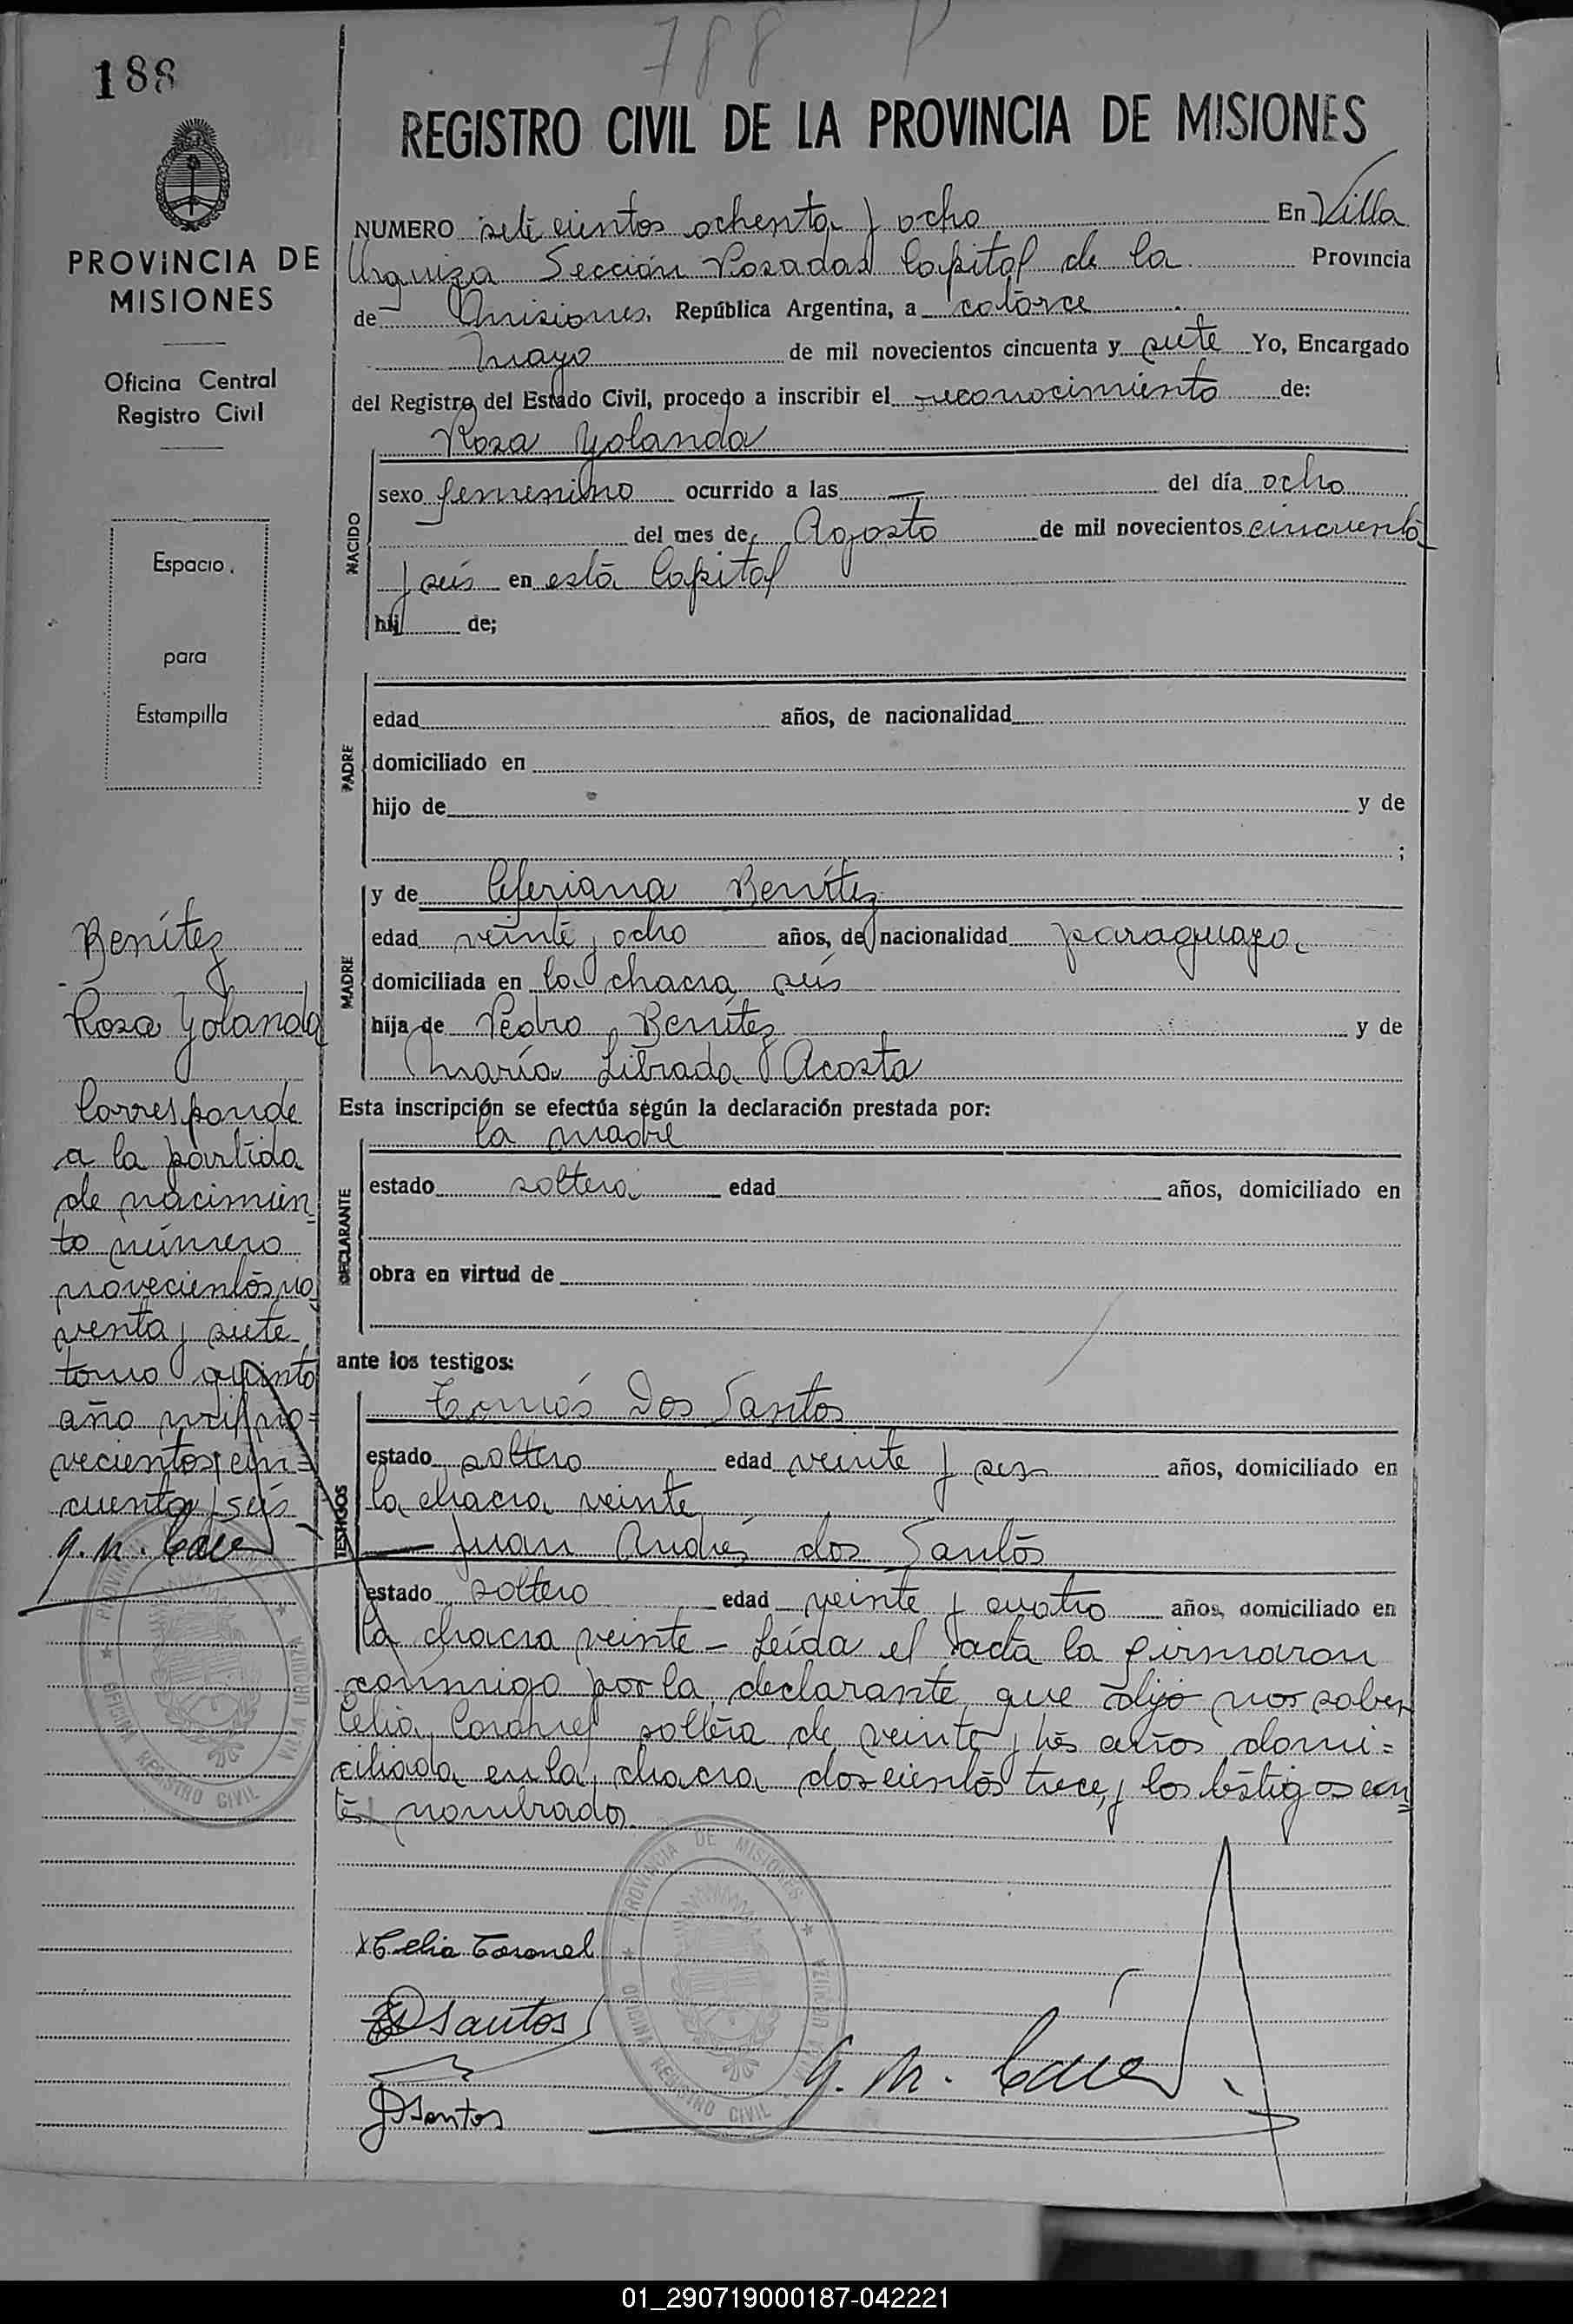 788 P
188
REGISTRO CIVIL DE LA PROVINCIA DE MISIONES
PROVINCIA DE
MISIONES
Oficina Central
Registro Civil
Espacio
para
Estampilla
NUMERO sete cientos ochenta y ocho En Villa
Urquiza Sección Posadas Capital de la Provincia
de Misiones, República Argentina, a catorce
Mayo de mil novecientos cincuenta y siete Yo, Encargado
del Registro del Estado Civil, procedo a inscribir el reconocimiento de:
Rosa Yolanda
NACIDO
sexo femenino ocurrido a las — del día ocho
del mes de Agosto de mil novecientos cincuenta
y seis en esta Capital
hij de;
PADRE
edad años, de nacionalidad
domiciliado en
hijo de y de
;
MADRE
y de Ceferiana Benítez
edad veinte y ocho años, de nacionalidad paraguaya
domiciliada en la chacra seis
hija de Pedro Benítez y de
María Librada Acosta
Esta inscripción se efectúa según la declaración prestada por:
DECLARANTE
la madre
estado soltera edad años, domiciliado en
obra en virtud de
ante los testigos:
TESTIGOS
Tomás Dos Santos
estado soltero edad veinte y seis años, domiciliado en
la chacra veinte
Juan Andrés dos Santos
estado soltero edad veinte y cuatro años, domiciliado en
la chacra veinte — Leída el acta la firmaron
conmigo por la declarante que dijo no saber
Celia Coronel soltera de veinte y trés años domi=
ciliada en la chacra doscientos trece, y los testigos an=
tes nombrados.
Benítez
Rosa Yolanda
Corresponde
a la partida
de nacimien=
to número
novecientos no
venta y siete
tomo quinto
año mil no=
vecientos cin=
cuenta y seis
PROVINCIA DE MISIONES
OFICINA REGISTRO CIVIL VILLA URQUIZA
Celia Coronel
DSantos
JDSantos
PROVINCIA DE MISIONES
OFICINA REGISTRO CIVIL VILLA URQUIZA
01_290719000187-042221